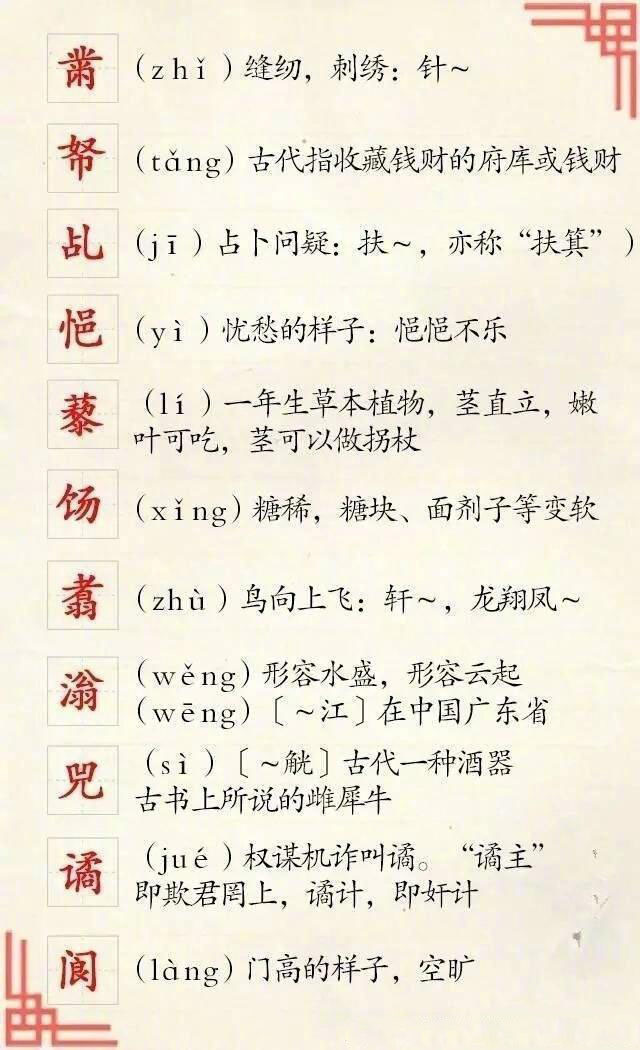 黹 (zhǐ)缝纫，刺绣：针～
帑 (tǎng)古代指收藏钱财的府库或钱财
乩 (jī)占卜问疑：扶～，亦称“扶箕”)
悒 (yì)忧愁的样子：悒悒不乐
藜 (lí)一年生草本植物，茎直立，嫩
叶可吃，茎可以做拐杖
饧 (xǐng)糖稀，糖块、面剂子等变软
翥 (zhù)鸟向上飞：轩～，龙翔凤～
滃 (wěng)形容水盛，形容云起
(wēng)〔～江〕在中国广东省
兕 (sì)〔～觥〕古代一种酒器
古书上所说的雌犀牛
谲 (jué)权谋机诈叫谲。“谲主”
即欺君罔上，谲计，即奸计
阆 (làng)门高的样子，空旷